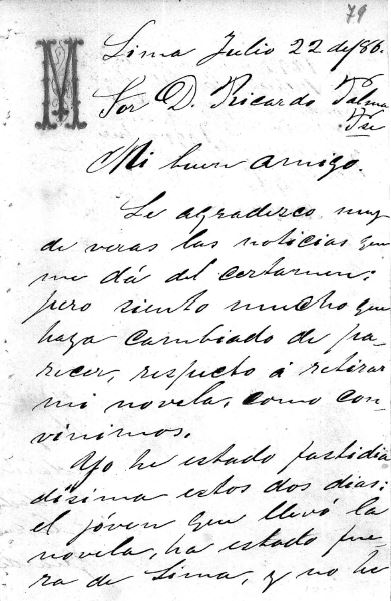 79
M
Lima Julio 22 de/86.
Sor D. Ricardo Palma
Pte
Mi buen amigo.
Le agradesco muy
de veras las noticias que
me dá del certamen;
pero siento mucho que
haya cambiado de pa-
recer, respecto á retirar
mi novela, como con-
vinimos.
Yo he estado fastidia
dísima estos dos dias:
el jóven que llevó la
novela, ha estado fue-
ra de Lima, y no he